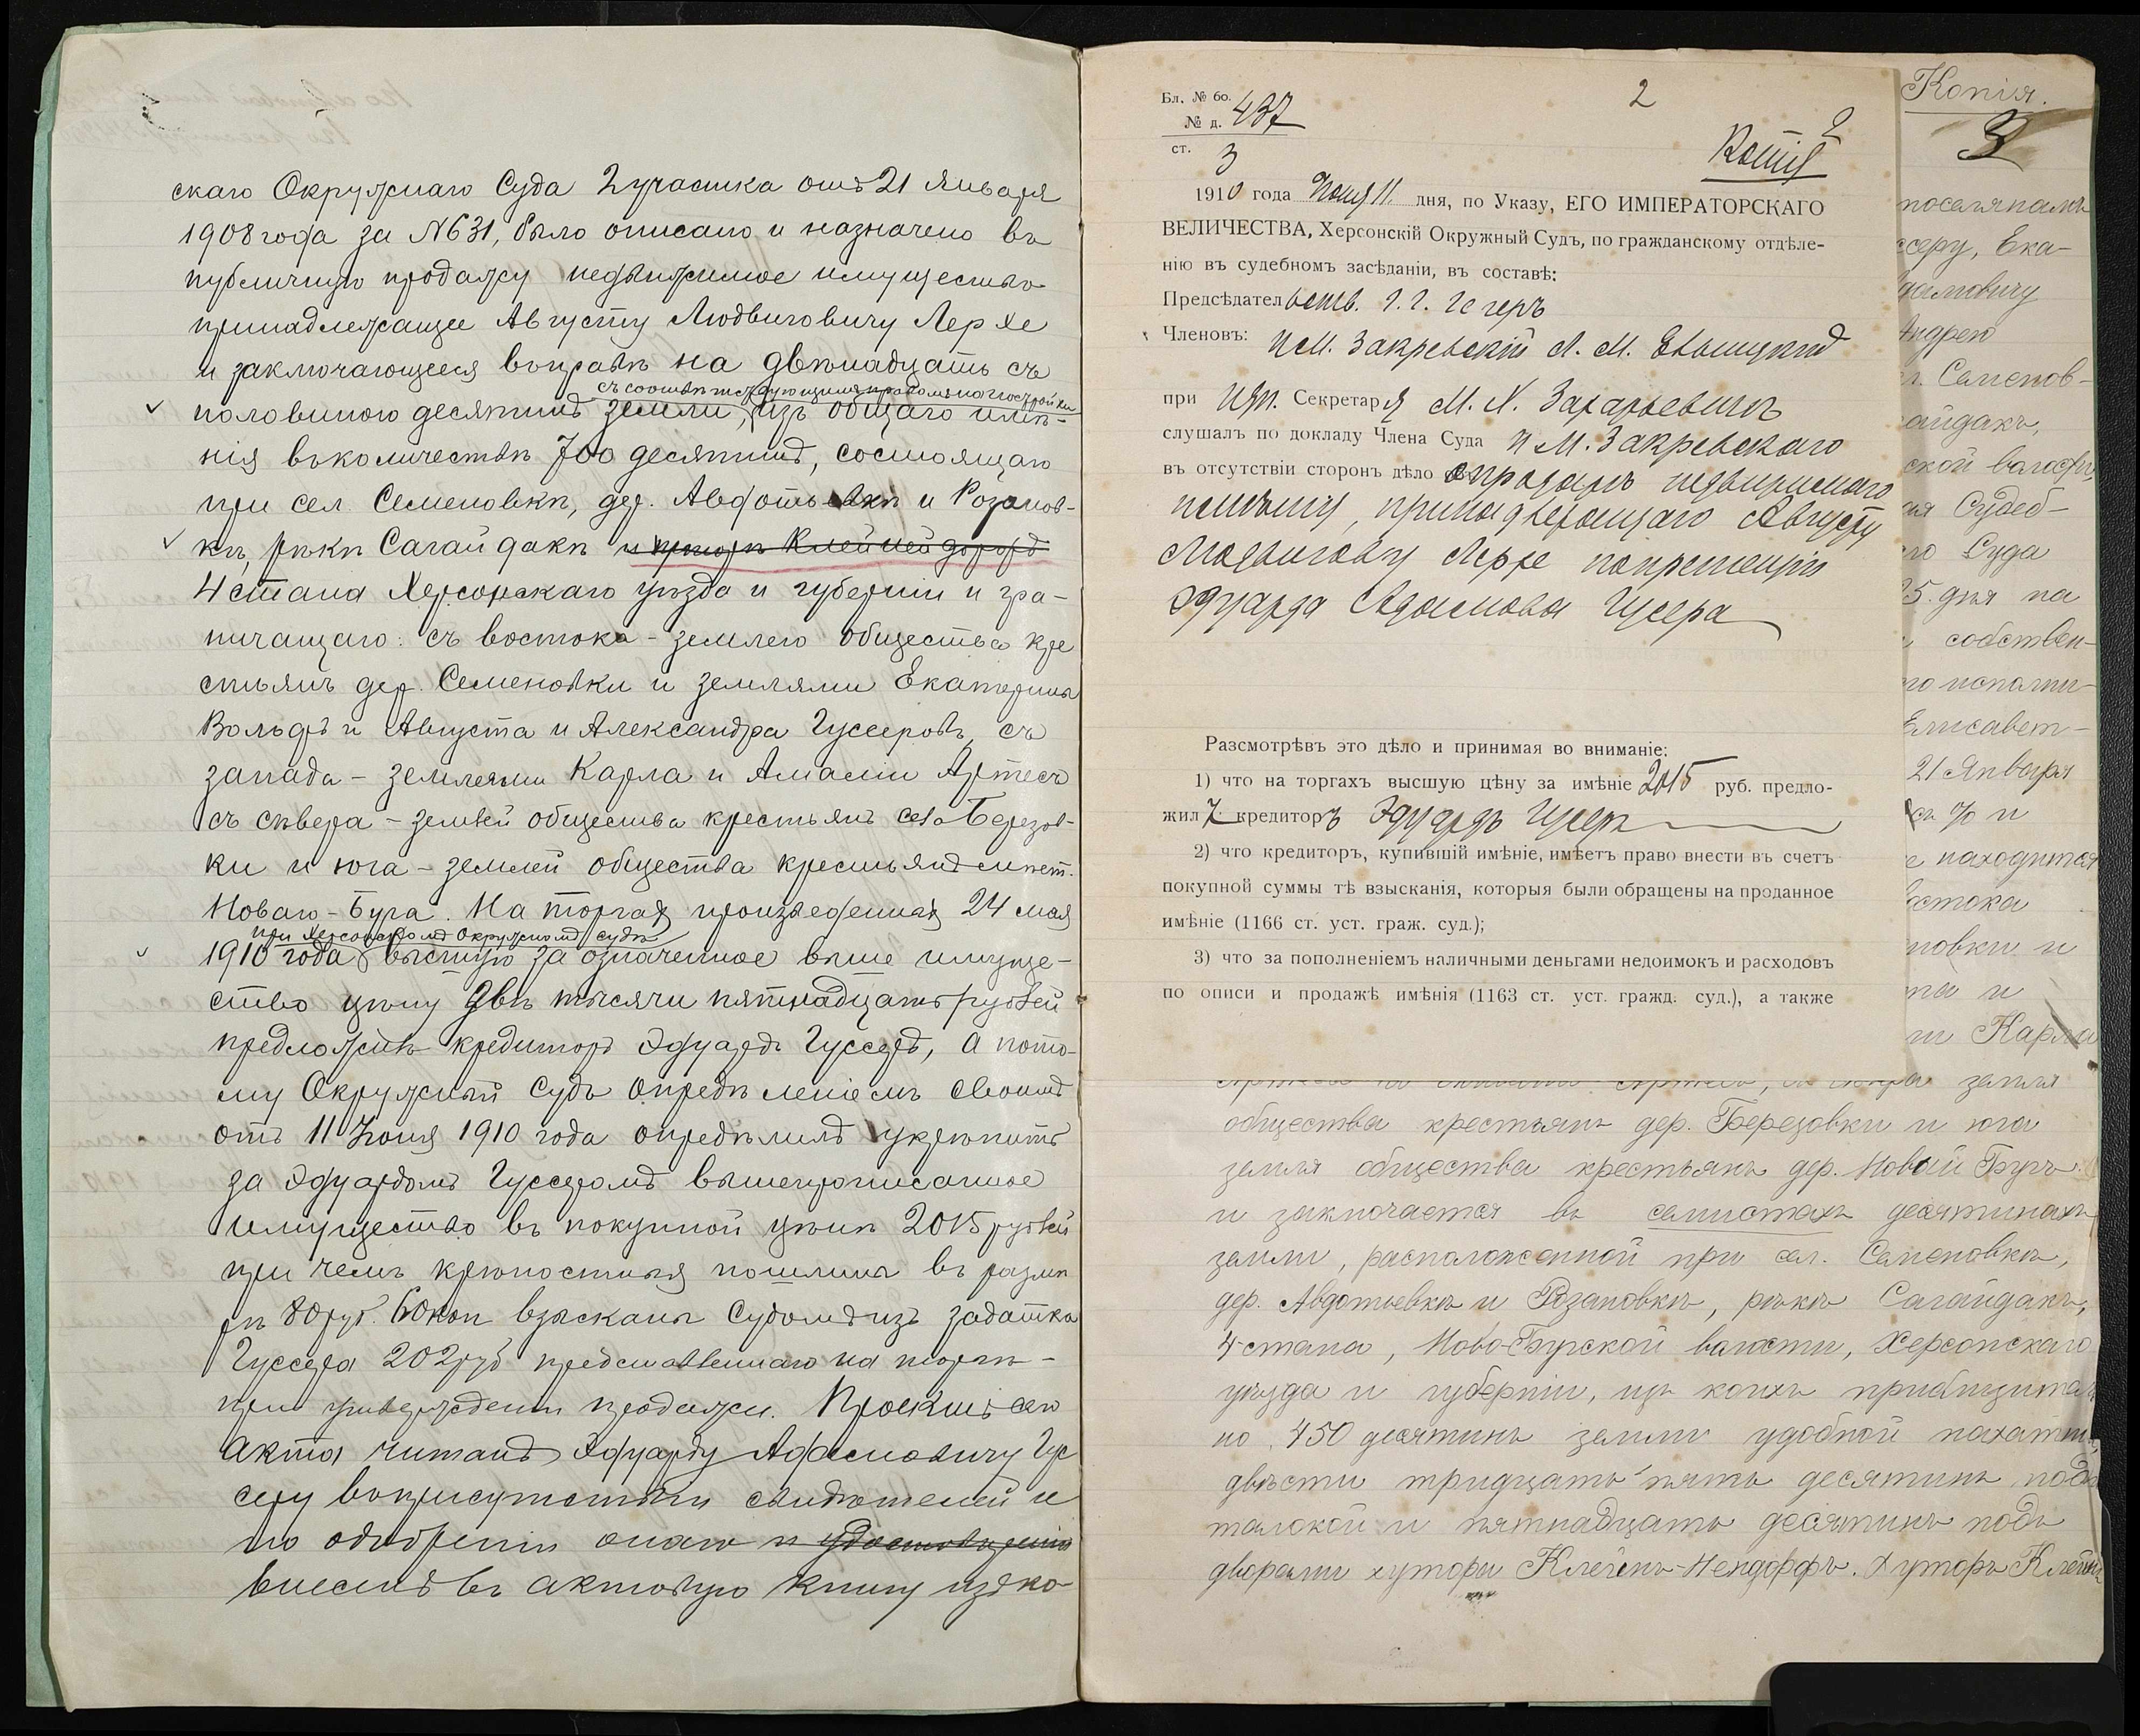 скаго Окружнаго Суда 2 участка отъ 21 Января
1908 года за N 631, было описано и назначено въ
публичную продажу недвижимое имущество
принадлежащее Августу Людвиговичу Лерхе
и заключающееся въ правѣ на двѣнадцать съ
съ соотвѣтствующими правами на постройки
половиною десятинъ земли, изъ общаго имѣ-
нія въ количествѣ 700 десятинъ, состоящаго
при сел. Семеновкѣ, дер. Авдотьевкѣ и Розанов-
кѣ, рѣкѣ Сагайдакѣ и хуторѣ Клейнейдорфъ
4 стана Херсонскаго уѣзда и губерніи и гра-
ничащаго: съ востока - землею общества кре
стьянъ дер. Семеновки и землями Екатерины
Вольфъ и Августа и Александра Гуссеровъ, съ
запада - землями Карла и Амаліи Артесъ
съ сѣвера - землей общества крестьянъ села Березов-
ки и юга - землей общества крестьянъ мѣст.
Новаго-Буга. На торгахъ произведенныхъ 24 мая
при Херсонскомъ Окружномъ судѣ
1910 года высшую за означенное выше имуще-
ство цѣну двѣ тысячи пятнадцать рублей
предложилъ кредиторъ Эдуардъ Гуссеръ, а пото-
му Окружный Судъ опредѣленіемъ своимъ
отъ 11 Іюня 1910 года опредѣлилъ укрѣпить
за Эдуардомъ Гуссеромъ вышепрописанное
имущество въ покупной цѣнѣ 2015 рублей
при чемъ крѣпостныя пошлины въ размѣ
рѣ 80 руб. 60 коп взысканы Судомъ изъ задатка
Гуссера 202 руб представленнаго на торги-
при утвержденіи продажи. Проектъ сего
акта читанъ Эдуарду Адамовичу Гус
серу въ присутствіи свидѣтелей и
по одобреніи онаго
внесенъ въ актовую книгу изъ ко-
Бл. № 60.
№ д. 437
ст. 3
2
2
Копія
1910 года Іюня 11 дня, по Указу, ЕГО ИМПЕРАТОРСКАГО
ВЕЛИЧЕСТВА, Херсонскій Окружный Судъ, по гражданскому отдѣле-
нію въ судебномъ засѣданіи, въ составѣ:
Предсѣдательств. Г. Г.
Членовъ: И. М. Закревскій А. М.
при Исп. Секретаря М. Х. Захарьевичъ
слушалъ по докладу Члена Суда И М. Закревскаго
въ отсутствіи сторонъ дѣло о продажѣ недвижимаго
имѣнія, принадлежащаго Августу
Людвигову Лерхе по претензіи
Эдуарда Адамова Гусера
Разсмотрѣвъ это дѣло и принимая во вниманіе:
1) что на торгахъ высшую цѣну за имѣніе 2015 руб. предло-
жилъ кредиторъ Эдуардъ Гусеръ
2) что кредиторъ, купившій имѣніе, имѣетъ право внести въ счетъ
покупной суммы тѣ взысканія, которыя были обращены на проданное
имѣніе (1166 ст. уст. граж. суд.);
3) что за пополненіемъ наличными деньгами недоимокъ и расходовъ
по описи и продажѣ имѣнія (1163 ст. уст. гражд. суд.), а также
Копія.
3
поселянамъ
ссеру, Ека-
дамовичу
Андрею
Семенов-
айдакъ,
ской волости,
ія Судеб-
го Суда
25. дня на
собствен-
го исполни-
Елисавет-
21 Января
съ % и
е находится
остока
новки и
та и
ли Карла
земля
общества крестьянъ дер. Березовки и юга
земля общества крестьянъ дер. Новый Бугъ
и заключается въ семистахъ десятинахъ
земли, расположенной при сел. Семеновкѣ,
дер. Авдотьевкѣ и Розановкѣ, рѣкѣ Сагайдакъ,
4 стана, Ново-Бугской волости, Херсонскаго
уѣзда и губерніи, изъ коихъ приблизитель
но 450 десятинъ земли удобной пахатн.
двѣсти тридцать пять десятинъ подъ
толокой и пятнадцать десятинъ подъ
дворами хутора Клейнъ-Нендорфъ. Хуторъ Клейнъ